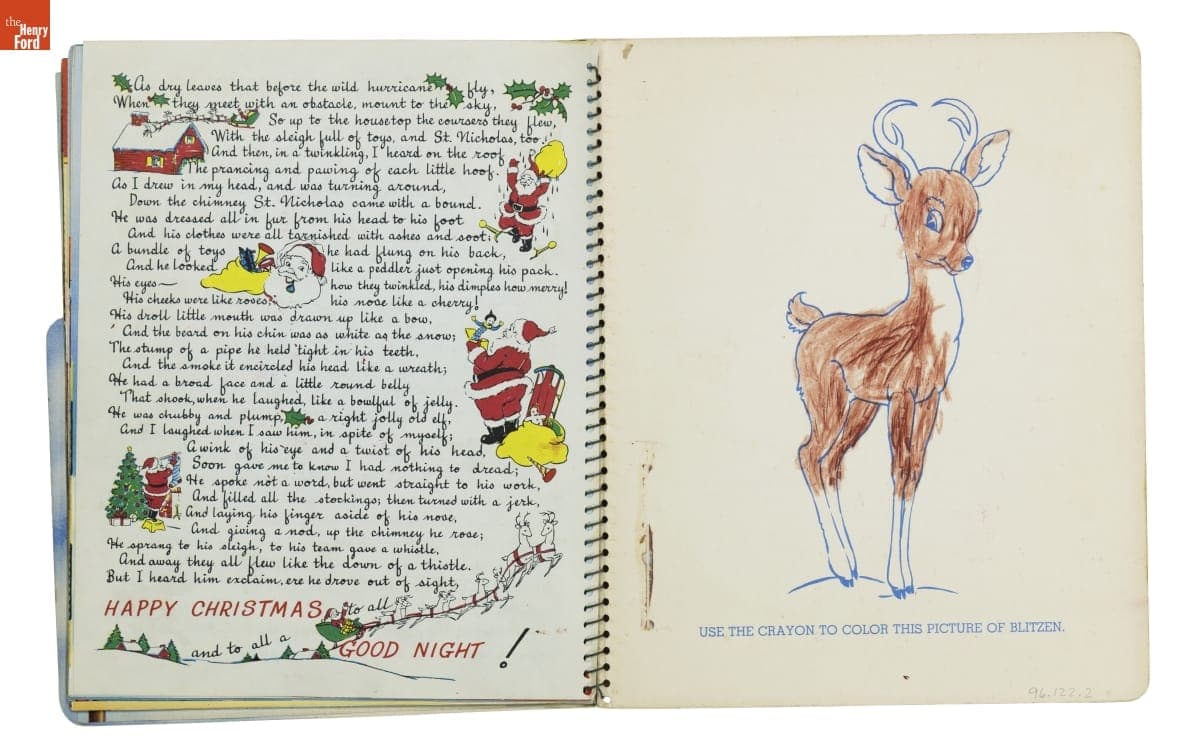 the
Henry
Ford
As dry leaves that before the wild hurricane fly,
When they meet with an obstacle, mount to the sky,
So up to the housetop the coursers they flew,
With the sleigh full of toys, and St. Nicholas, too!
And then, in a twinkling, I heard on the roof
The prancing and pawing of each little hoof.
As I drew in my head, and was turning around,
Down the chimney St. Nicholas came with a bound.
He was dressed all in fur from his head to his foot
And his clothes were all tarnished with ashes and soot;
A bundle of toys he had flung on his back,
And he looked like a peddler just opening his pack.
His eyes~ how they twinkled, his dimples how merry!
His cheeks were like roses, his nose like a cherry!
His droll little mouth was drawn up like a bow,
And the beard on his chin was as white as the snow;
The stump of a pipe he held tight in his teeth,
And the smoke it encircled his head like a wreath;
He had a broad face and a little round belly
That shook, when he laughed, like a bowlful of jelly.
He was chubby and plump, a right jolly old elf,
And I laughed when I saw him, in spite of myself;
A wink of his eye and a twist of his head,
Soon gave me to know I had nothing to dread;
He spoke not a word, but went straight to his work,
And filled all the stockings; then turned with a jerk,
And laying his finger aside of his nose,
And giving a nod, up the chimney he rose;
He sprang to his sleigh, to his team gave a whistle,
And away they all flew like the down of a thistle.
But I heard him exclaim, ere he drove out of sight,
HAPPY CHRISTMAS, to all
and to all a GOOD NIGHT!
USE THE CRAYON TO COLOR THIS PICTURE OF BLITZEN.
96.122.2